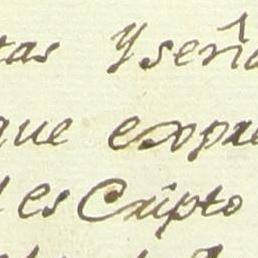 tas Yseña
que expre
es Cripto